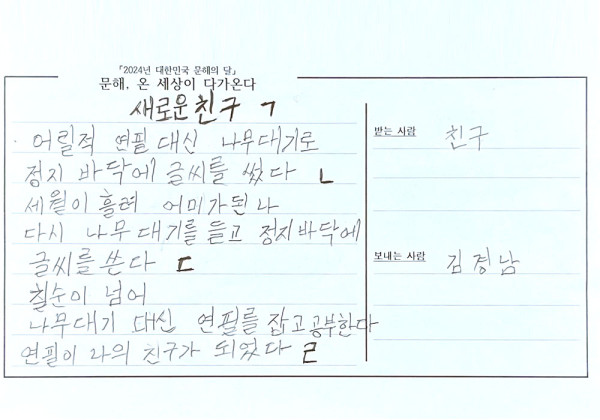 「2024년 대한민국 문해의 달」
문해, 온 세상이 다가온다
새로운 친구 ㄱ
어릴적 연필 대신 나무대기로
정지 바닥에 글씨를 썼다 ㄴ
세월이 흘러 어미가된 나
다시 나무대기를 들고 정지바닥에
글씨를 쓴다 ㄷ
칠순이 넘어
나무대기 대신 연필를 잡고공부한다
연필이 나의 친구가 되었다 ㄹ
받는 사람 친구
보내는 사람 김경남